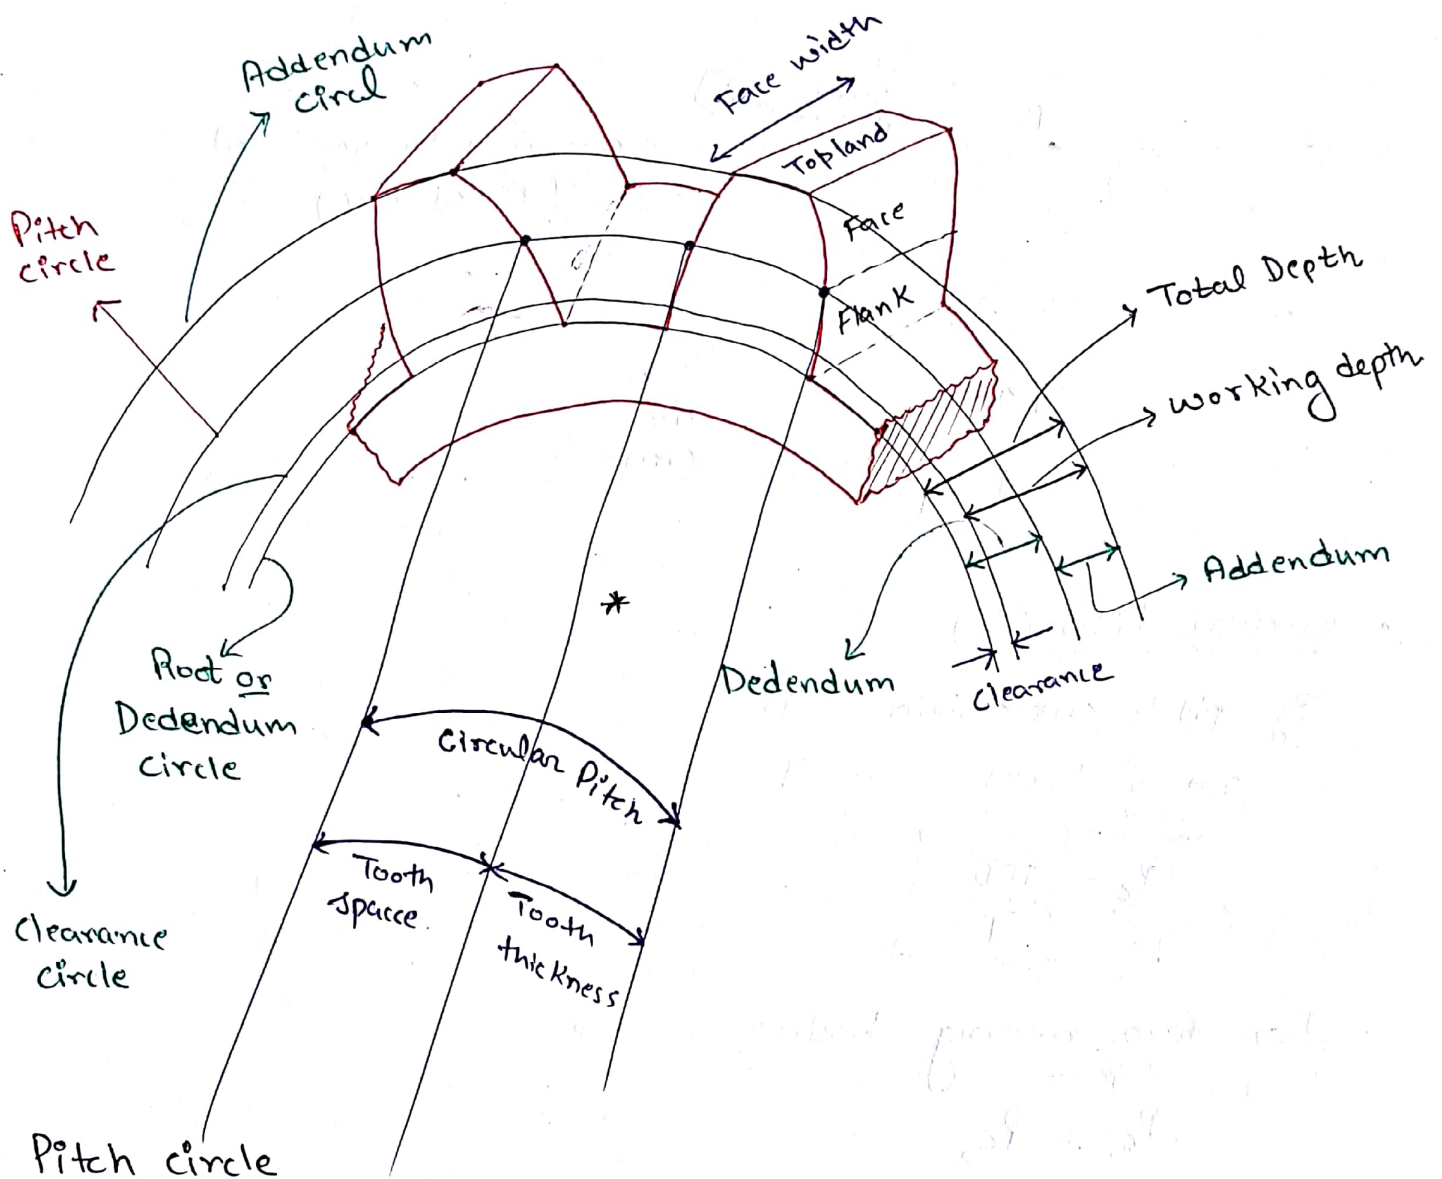 Addendum
circul
Face width
Topland
Face
Flank
Pitch
circle
Total Depth
Working depth
Addendum
Dedendum
Clearance
Root or
Dedendum
Circle
Circular Pitch
Tooth
spacce.
Tooth
thickness
Clearance
Circle
Pitch circle